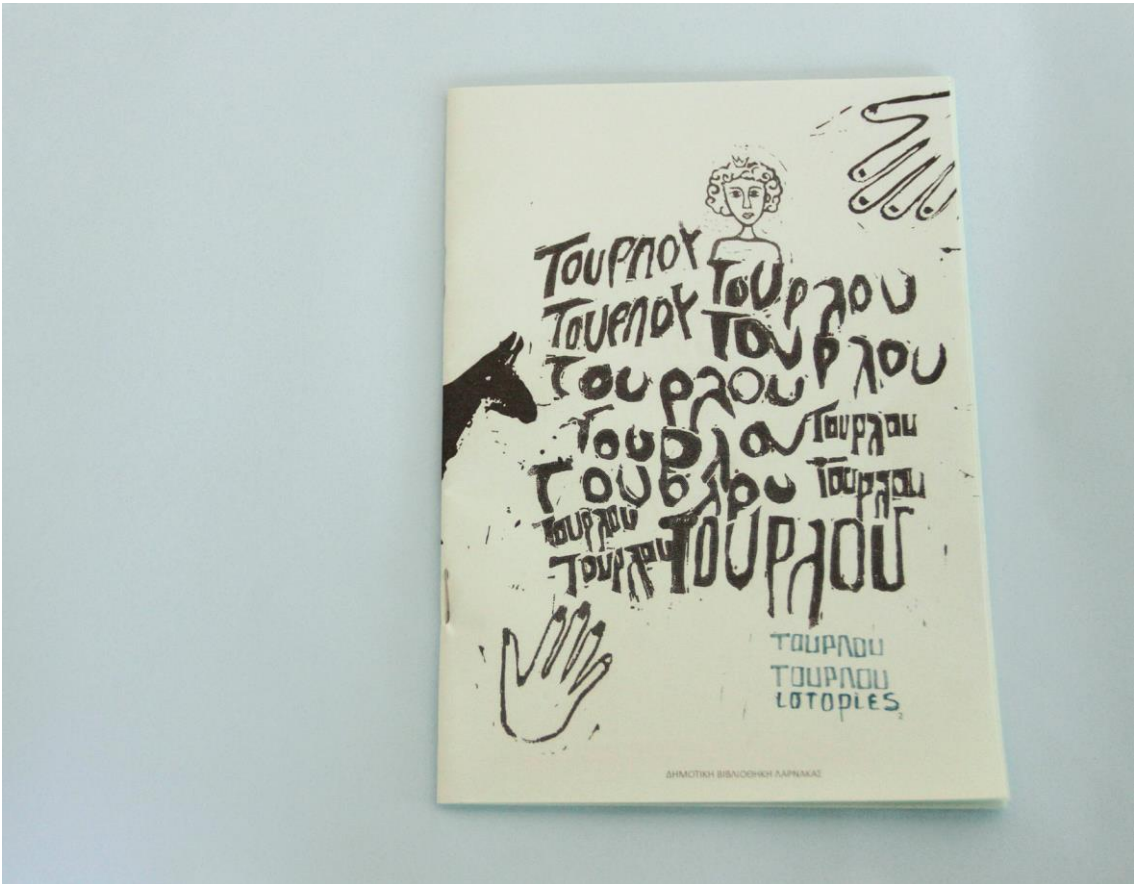 Τουρλου Τουρλου
Τουρλου Τουρλου
Τουρλου
Τουρλου Τουρλου
Τουρλου Τουρλου
Τουρλου
Τουρλου ΤΟΥΡλΟΥ
ΤΟΥΡΛΟΥ
ΤΟΥΡΛΟΥ
ιστορίες
2
ΔΗΜΟΤΙΚΗ ΒΙΒΛΙΟΘΗΚΗ ΛΑΡΝΑΚΑΣ